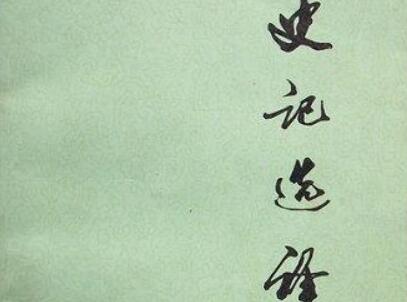 史记选译